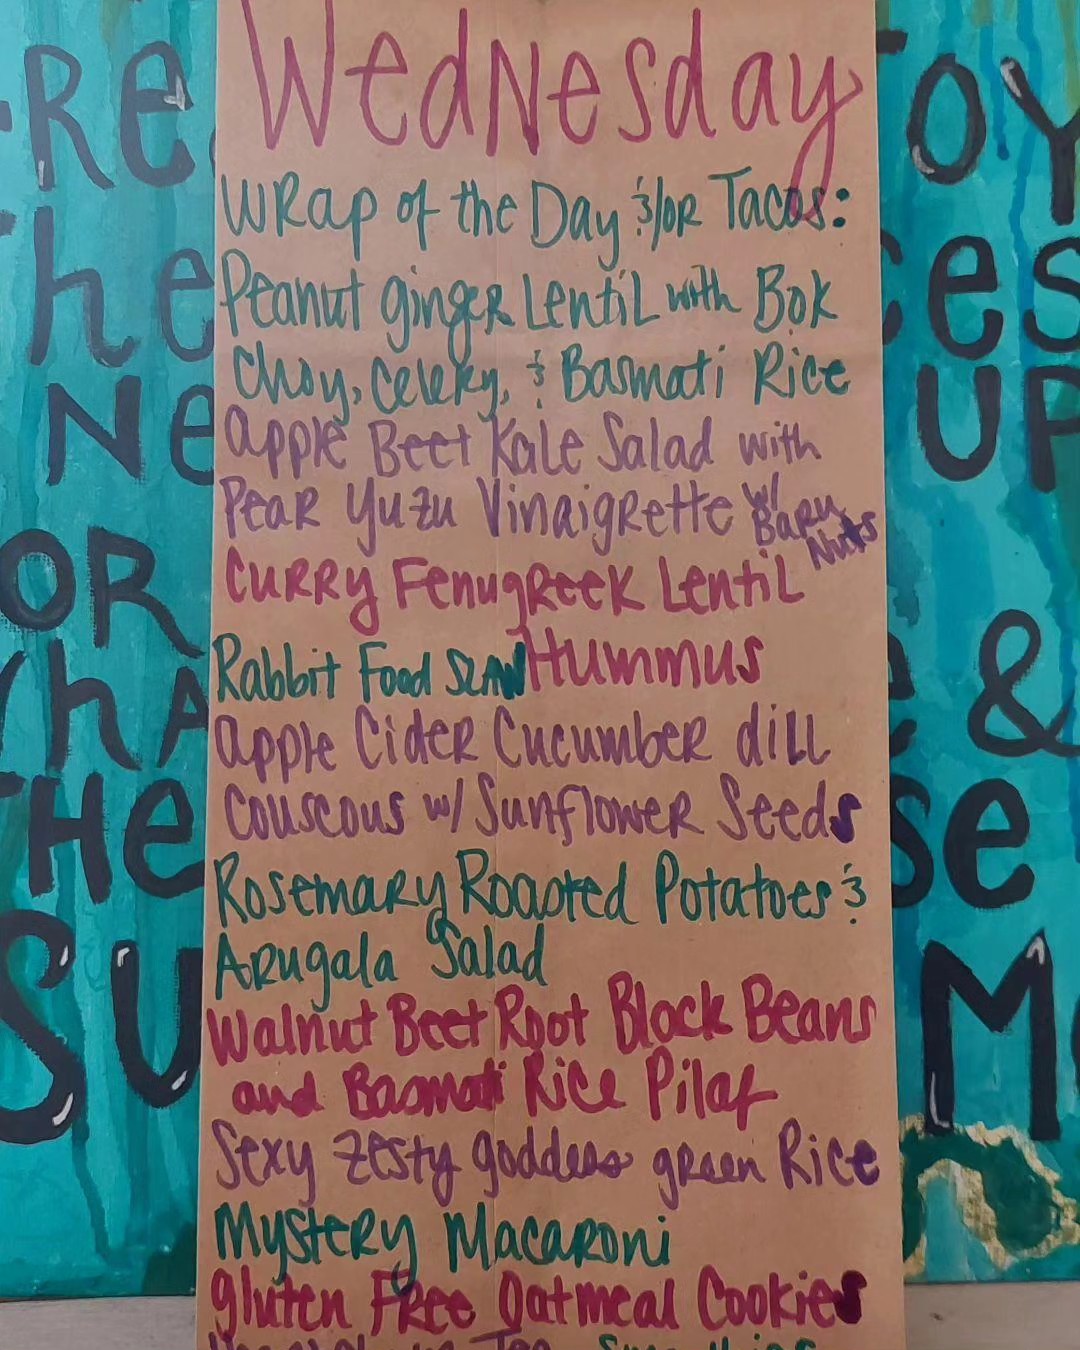 Wednesday
Wrap of the Day &/or Tacos:
Peanut ginger Lentil with Bok
Choy, Celery, & Basmati Rice
Apple Beet Kale Salad with
Pear Yuzu Vinaigrette w/ Baru Nuts
Curry Fenugreek Lentil
Hummus
Rabbit Food Slaw
Apple Cider Cucumber dill
Couscous w/ Sunflower Seeds
Rosemary Roasted Potatoes &
Arugala Salad
Walnut Beet Root Black Beans
and Basmati Rice Pilaf
Sexy Zesty goddess green Rice
Mystery Macaroni
gluten Free Oatmeal Cookies
RE
OY
he
ces
NE
UP
OR
&
hA
THE
se
SU
M